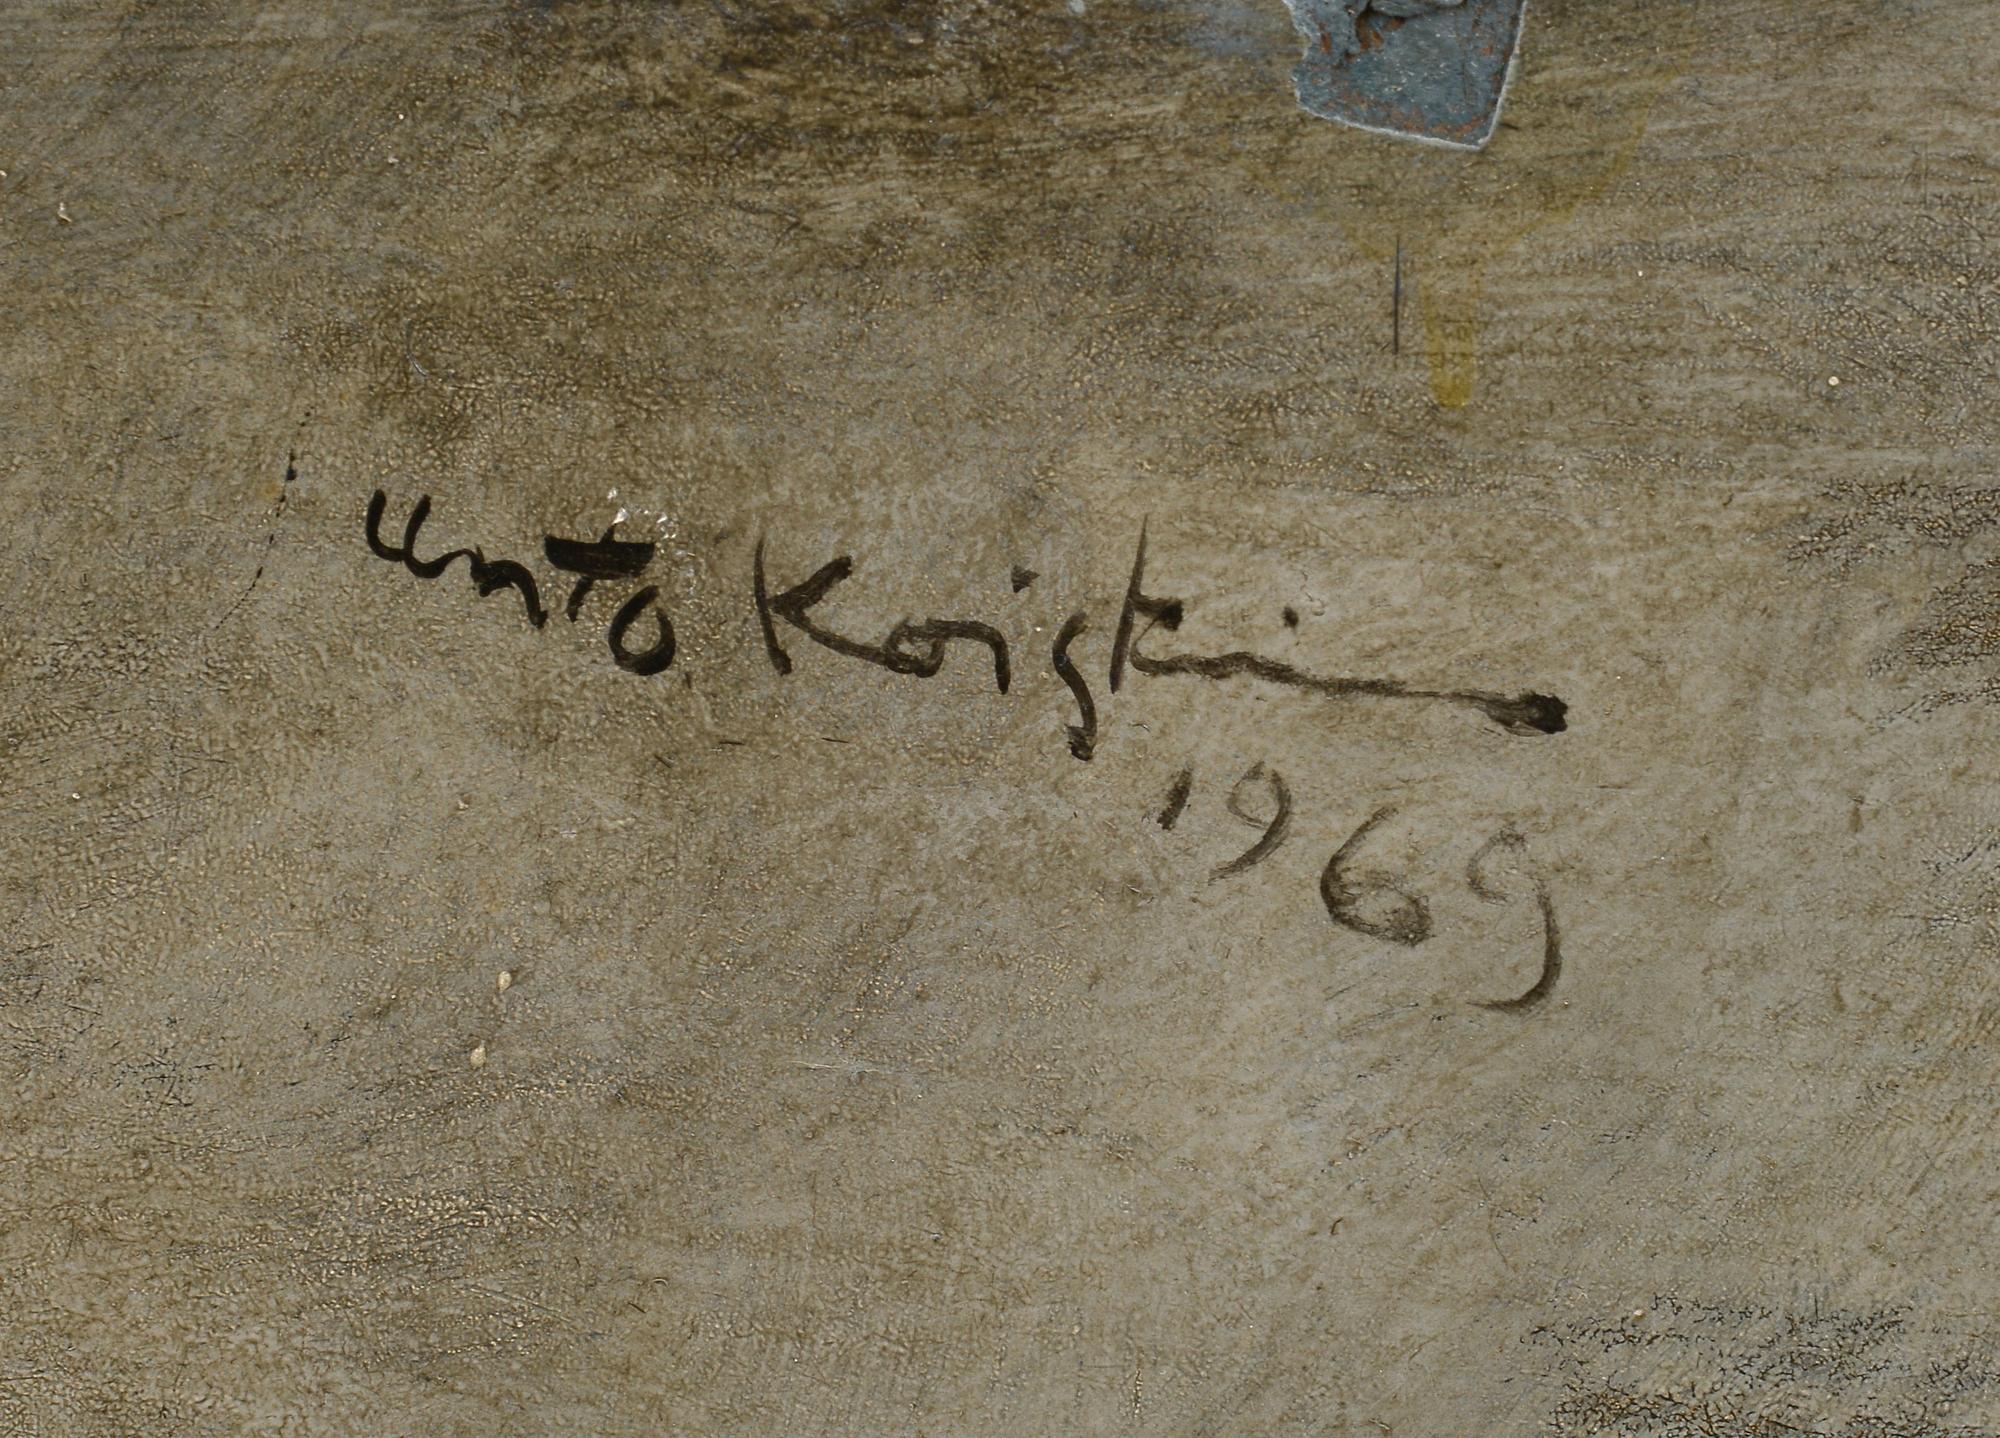 Unto Koistinen
1969